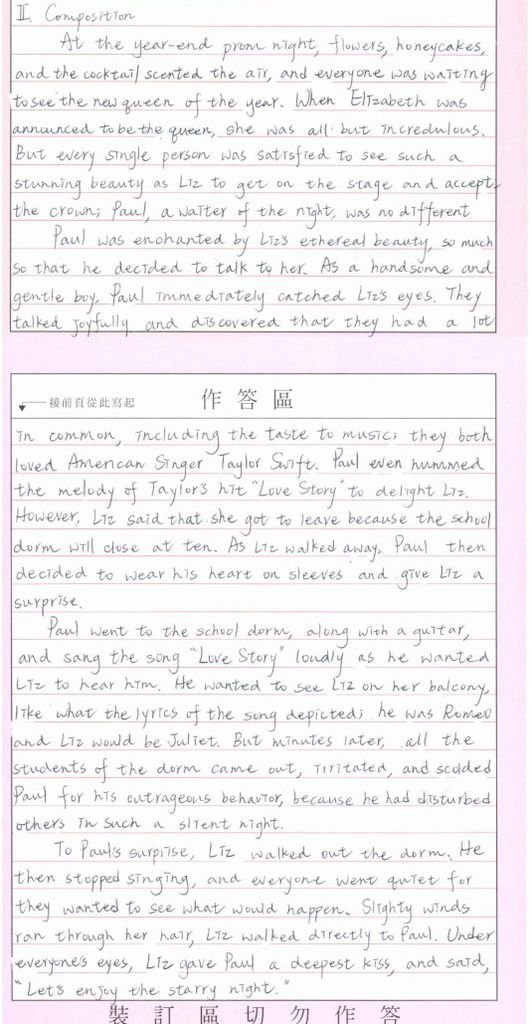 II. Composition
At the year-end prom night, flowers, honeycakes,
and the cocktail scented the air, and everyone was waiting
to see the new queen of the year. When Elizabeth was
announced to be the queen, she was all but incredulous.
But every single person was satisfied to see such a
stunning beauty as Liz to get on the stage and accept
the crown; Paul, a waiter of the night, was no different.
Paul was enchanted by Liz's ethereal beauty, so much
so that he decided to talk to her. As a handsome and
gentle boy, Paul immediately catched Liz's eyes. They
talked joyfully and discovered that they had a lot
接前頁從此寫起 作答區
in common, including the taste to music; they both
loved American singer Taylor Swift. Paul even hummed
the melody of Taylor's hit "Love Story" to delight Liz.
However, Liz said that she got to leave because the school
dorm will close at ten. As Liz walked away, Paul then
decided to wear his heart on sleeves and give Liz a
surprise.
Paul went to the school dorm, along with a guitar,
and sang the song "Love Story" loudly as he wanted
Liz to hear him. He wanted to see Liz on her balcony,
like what the lyrics of the song depicted; he was Romeo
and Liz would be Juliet. But minutes later, all the
students of the dorm came out, irritated, and scolded
Paul for his outrageous behavior, because he had disturbed
others in such a silent night.
To Paul's surprise, Liz walked out the dorm. He
then stopped singing, and everyone went quiet for
they wanted to see what would happen. Slighty winds
ran through her hair, Liz walked directly to Paul. Under
everyone's eyes, Liz gave Paul a deepest kiss, and said,
"Let's enjoy the starry night."
裝訂區切勿作答